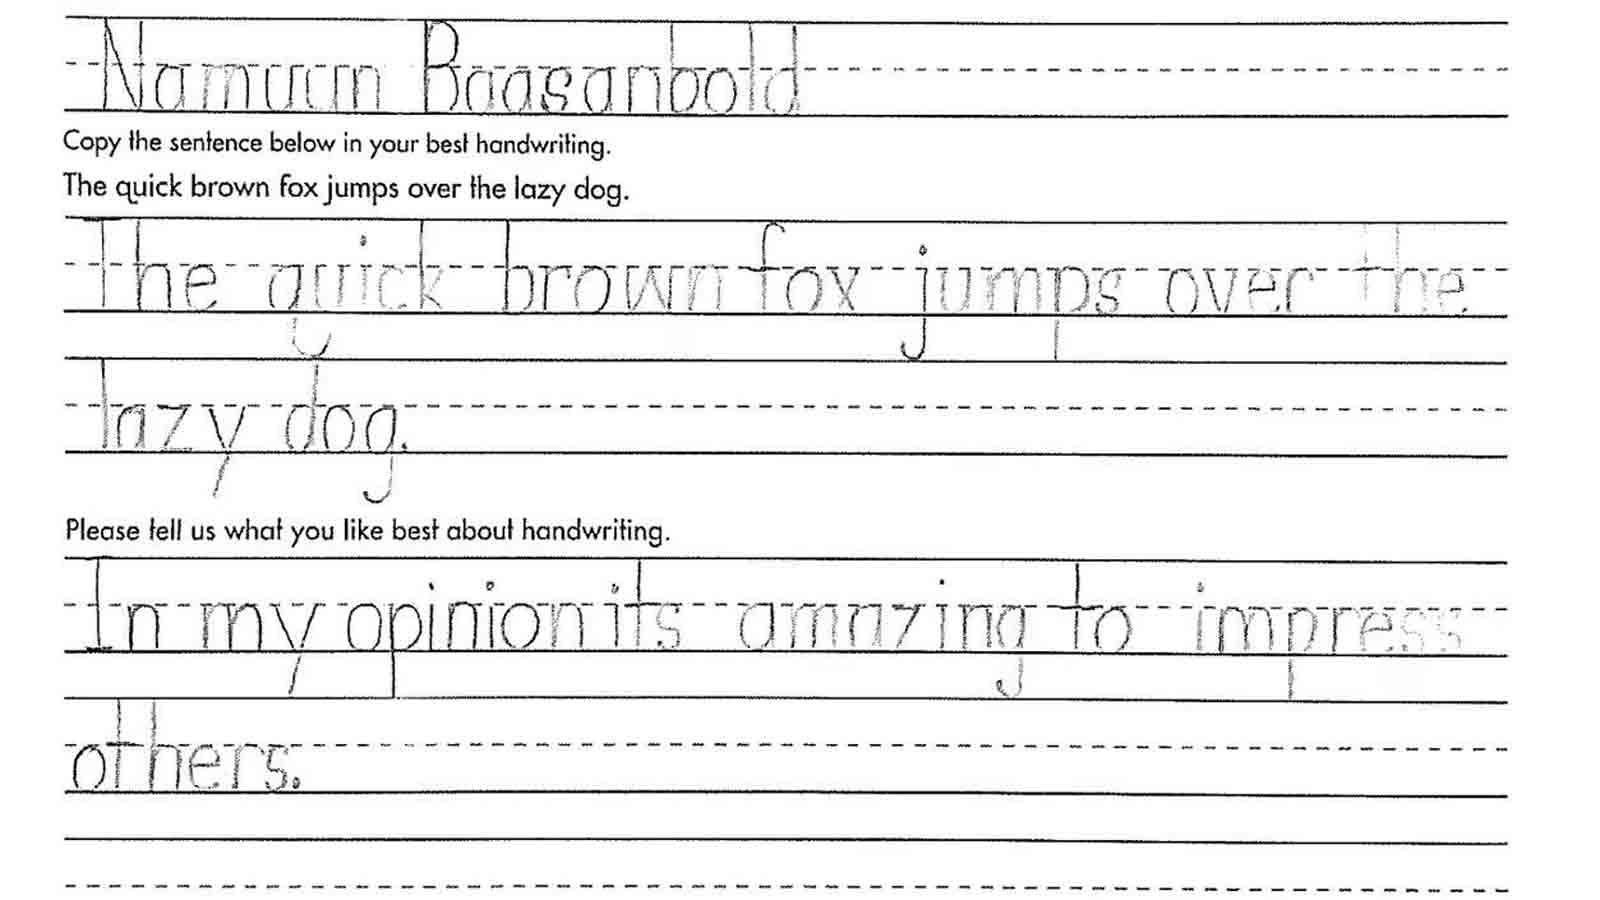 Namuun Baasanbold
Copy the sentence below in your best handwriting.
The quick brown fox jumps over the lazy dog.
The quick brown fox jumps over the
lazy dog.
Please tell us what you like best about handwriting.
In my opinion its amazing to impress
others.